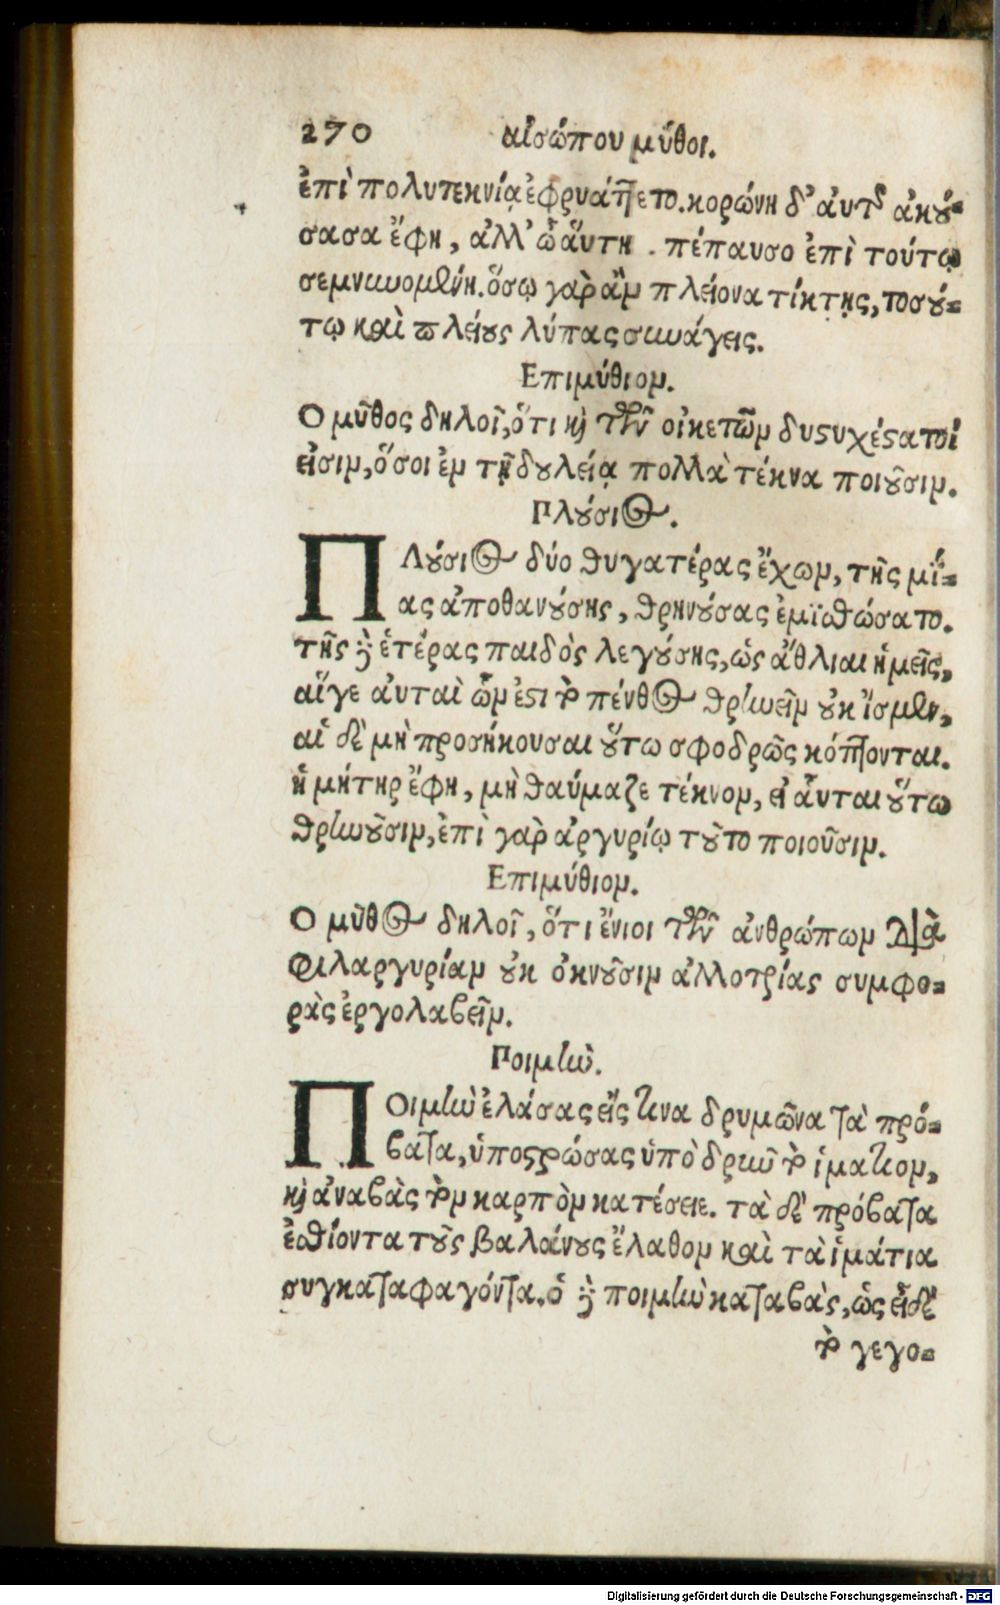 270 αἰσώπου μύθοι.
ἐπὶ πολυτεκνίᾳ ἐφρυάττετο. κορώνη δ᾽ ἀυτῆς ἀκού-
σασα ἔφη, ἀλλ᾽ ὦ ἅυτη . πέπαυσο ἐπὶ τούτῳ
σεμνυνομένη. ὅσῳ γὰρ ἂν πλείονα τίκτῃς, τοσού-
τῳ καὶ πλείους λύπας συνάγεις.
Επιμύθιον.
Ο μῦθος δηλοῖ, ὅτι καὶ τῶν οἰκετῶν δυστυχέστατοί
εἰσιν, ὅσοι ἐν τῇ δουλείᾳ πολλὰ τέκνα ποιοῦσιν.
Πλούσιος.
ΠΛούσιος δύο θυγατέρας ἔχων, τῆς μί-
ας ἀποθανούσης, θρηνούσας ἐμισθώσατο.
τῆς δὲ ἑτέρας παιδὸς λεγούσης, ὡς ἄθλιαι ἡμεῖς,
αἵγε ἀυταὶ ὧν ἐστὶ τὸ πένθος θρηνεῖν οὐκ ἴσμεν,
αἱ δὲ μὴ προσήκουσαι οὕτω σφοδρῶς κόπτονται.
ἡ μήτηρ ἔφη, μὴ θαύμαζε τέκνον, εἰ ἀῦται οὕτω
θρηνοῦσιν, ἐπὶ γὰρ ἀργυρίῳ τοῦτο ποιοῦσιν.
Επιμύθιον.
Ο μῦθος δηλοῖ, ὅτι ἔνιοι τῶν ἀνθρώπων διὰ
φιλαργυρίαν οὐκ ὀκνοῦσιν ἀλλοτρίας συμφο-
ρὰς ἐργολαβεῖν.
Ποιμὴν.
ΠΟιμὴν ἐλάσας εἴς τινα δρυμῶνα τὰ πρό-
βατα, ὑποστρώσας ὑπὸ δρυῒ τὸ ἱμάτιον,
καὶ ἀναβὰς τὸν καρπὸν κατέσειε. τὰ δὲ πρόβατα
ἐσθίοντα τοὺς βαλάνους ἔλαθον καὶ τὰ ἱμάτια
συγκαταφαγόντα. ὁ δὲ ποιμὴν καταβὰς, ὡς εἶδε
τὸ γεγο-
Digitalisierung gefördert durch die Deutsche Forschungsgemeinschaft - DFG